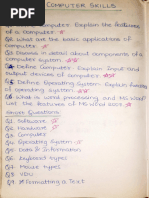 COMPUTER SKILLS
Computer. Explain the features
of a computer.
Q2 What are the basic applications of
Computer.
Q3 Discuss in detail about components of a
computer system.
Q4 Define Computer. Explain Input and
output devices of computer.
Q5 Define Operating System. Explain
of operating system.
Q6 What is word processing and
List the features of MS Word 2007.
Short Questions
Q1 Software
Q2 Hardware
Q3 Computer
Q4 Operating System
Q5 Data & Information
Q6 Keyboard types
Q7 Mouse types
Q8 VDU
Q9 Formatting a Text